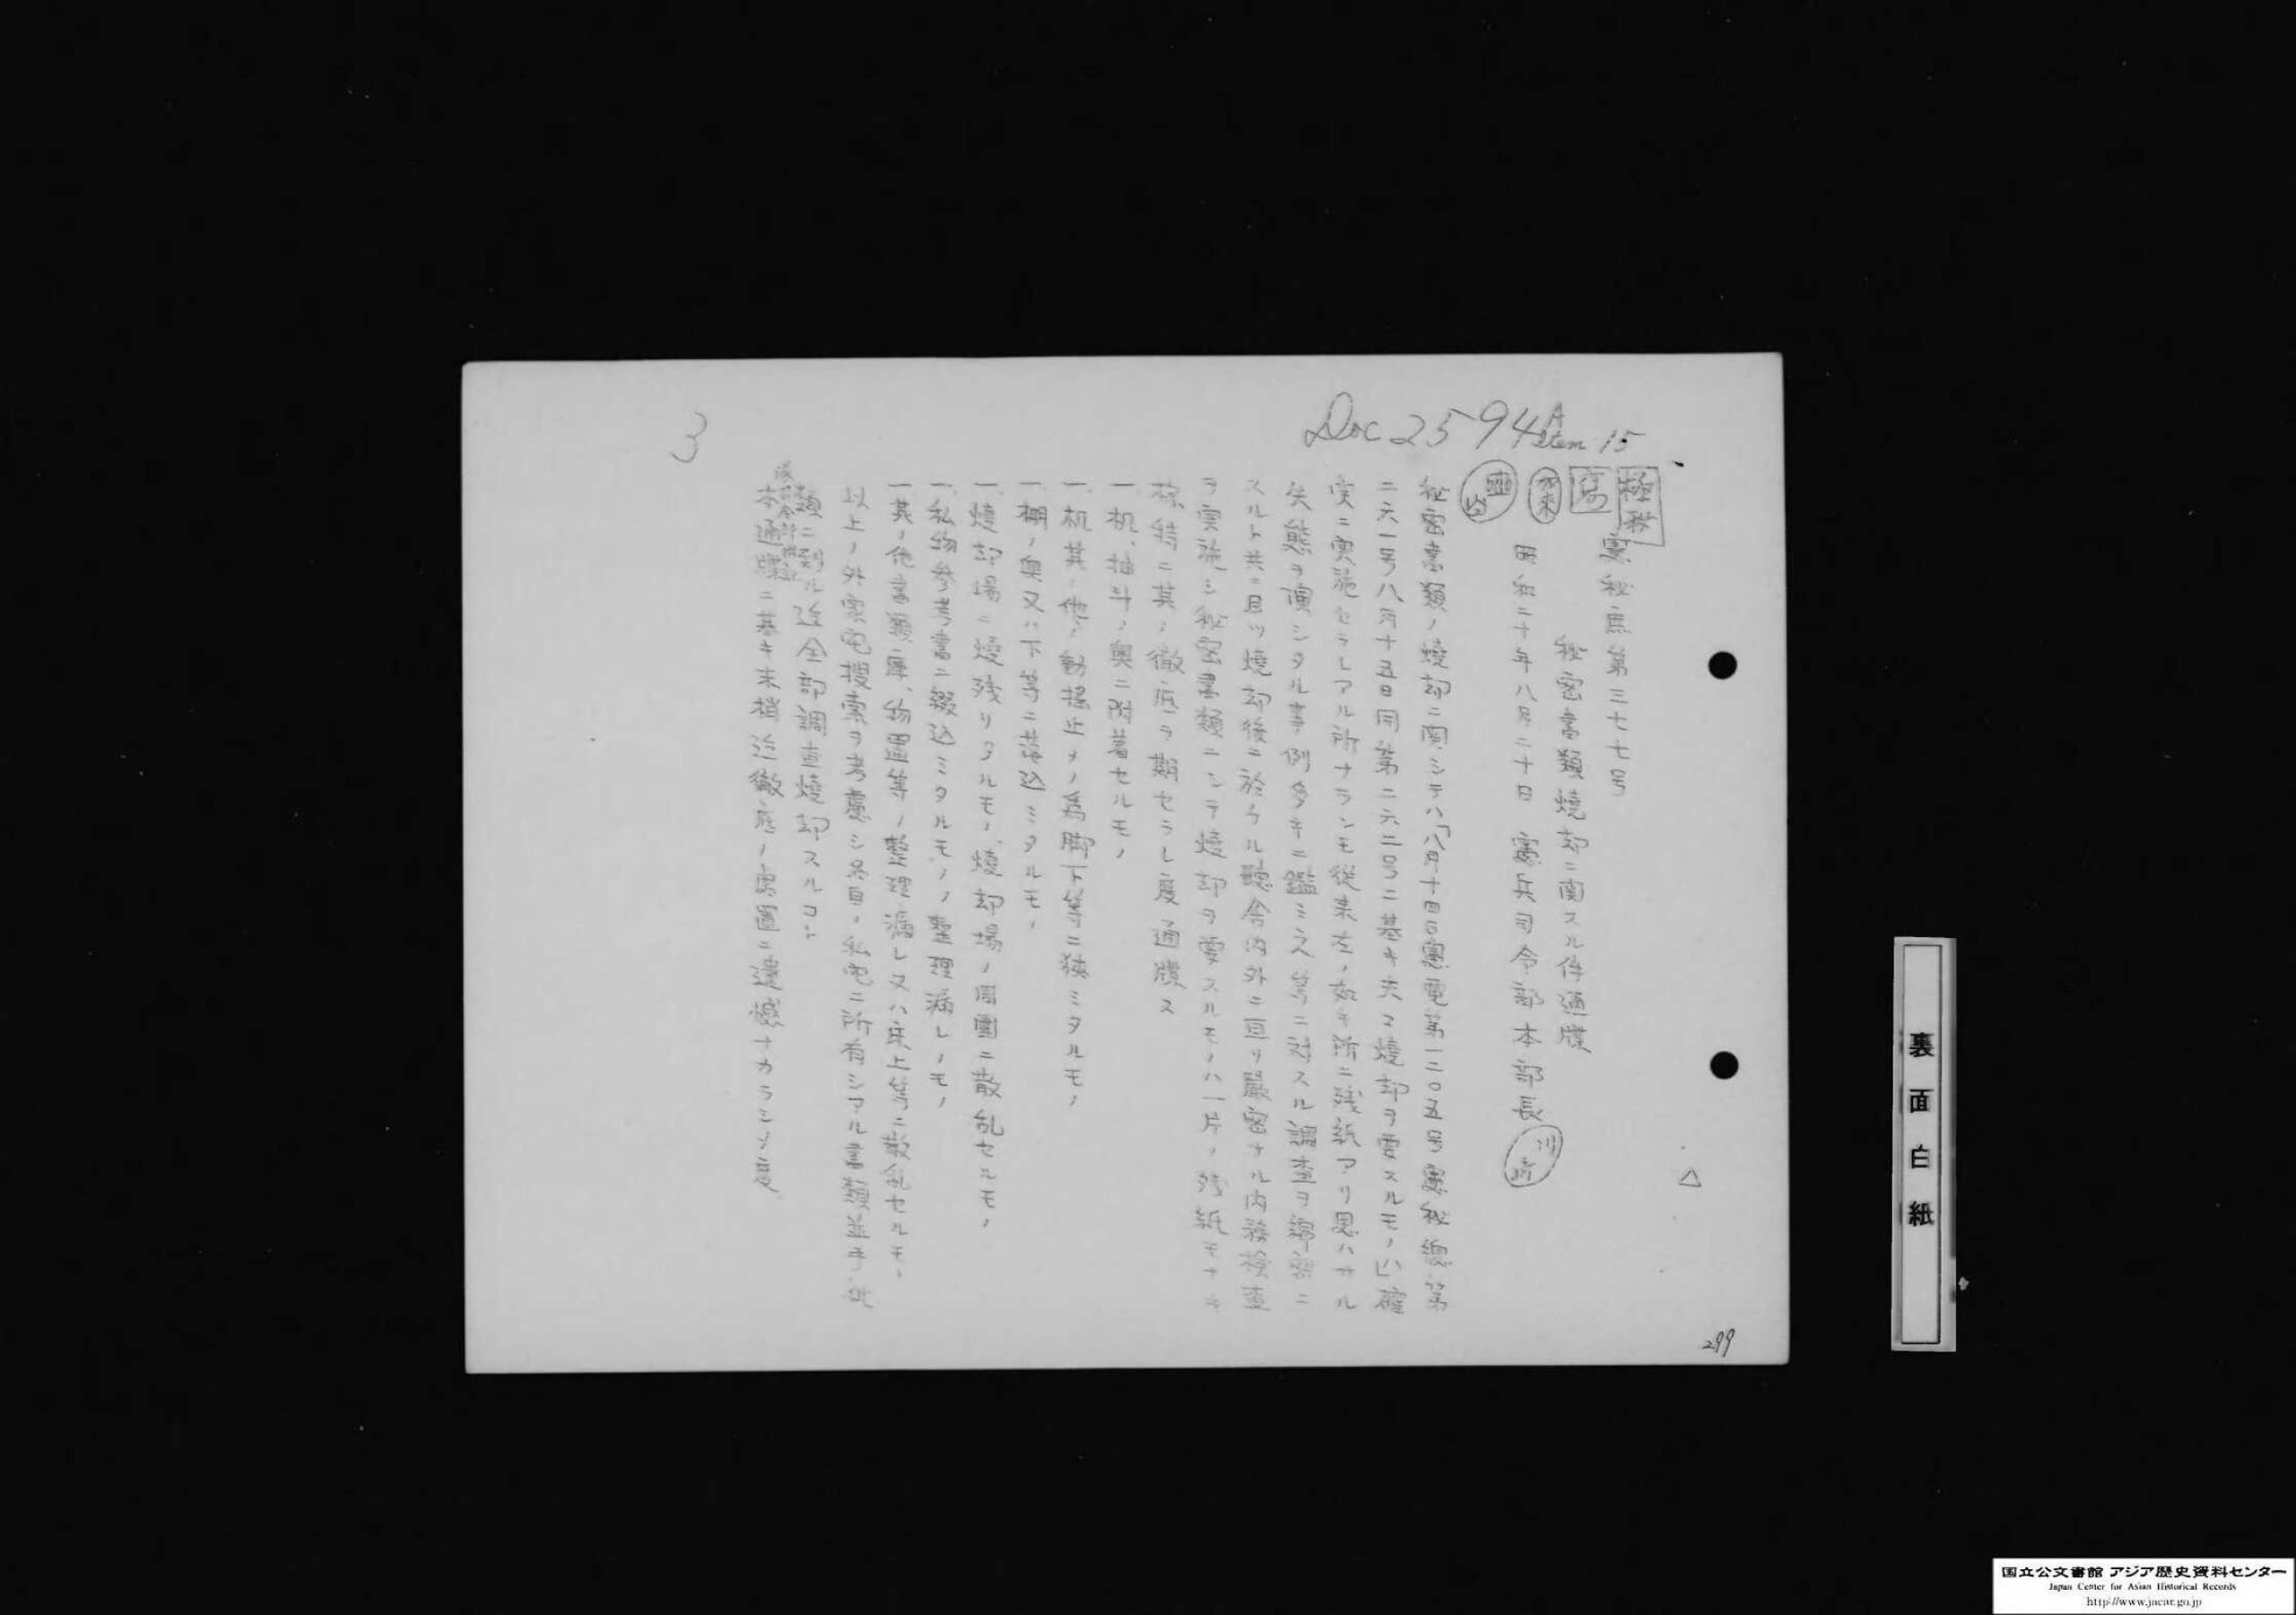 Doc 2594A Item 15
3
極秘
憲秘庶第三七七号
秘密書類焼却ニ関スル件通牒
昭和二十年八月二十日 憲兵司令部本部長 川崎
秘密書類ノ焼却ニ関シテハ「八月十四日憲電第一二〇五号憲秘第
二六一号八月十五日同第二六二号ニ基キ夫々焼却ヲ要スルモノハ」確
実ニ実施セラレアル所ナランモ従来左ノ如キ所ニ残紙アリ思ハサル
失態ヲ演シタル事例多キニ鑑ミ之等ニ対スル調査ヲ
スルト共ニ且ツ焼却後ニ於ケル庁舎内外ニ亘リ厳密ナル内務検査
ヲ実施シ秘密書類ニシテ焼却ヲ要スルモノハ一片ノ残紙モナキ
様特ニ其ノ徹底ヲ期セラレ度通牒ス
一、机、抽斗ノ奥ニ附着セルモノ
一、机其ノ他ノ動揺止メノ為脚下等ニ挟ミタルモノ
一、棚ノ奥又ハ下等ニ落込ミタルモノ
一、焼却場ニ焼残リアルモノ、焼却場ノ周囲ニ散乱セルモノ
一、私物参考書ニ綴込ミタルモノノ整理漏レノモノ
一、其ノ他書類庫、物置等ノ整理漏レ又ハ床上等ニ散乱セルモノ
以上ノ外家宅捜索ヲ考慮シ各自ノ私宅ニ所有シアル書類並手紙
類ニ至ル迄全部調査焼却スルコト
本通牒ニ基キ末端迄徹底ノ処置ニ遺憾ナカラシメ度
△
299
裏面白紙
国立公文書館 アジア歴史資料センター
Japan Center for Asian Historical Records
http://www.jacar.go.jp